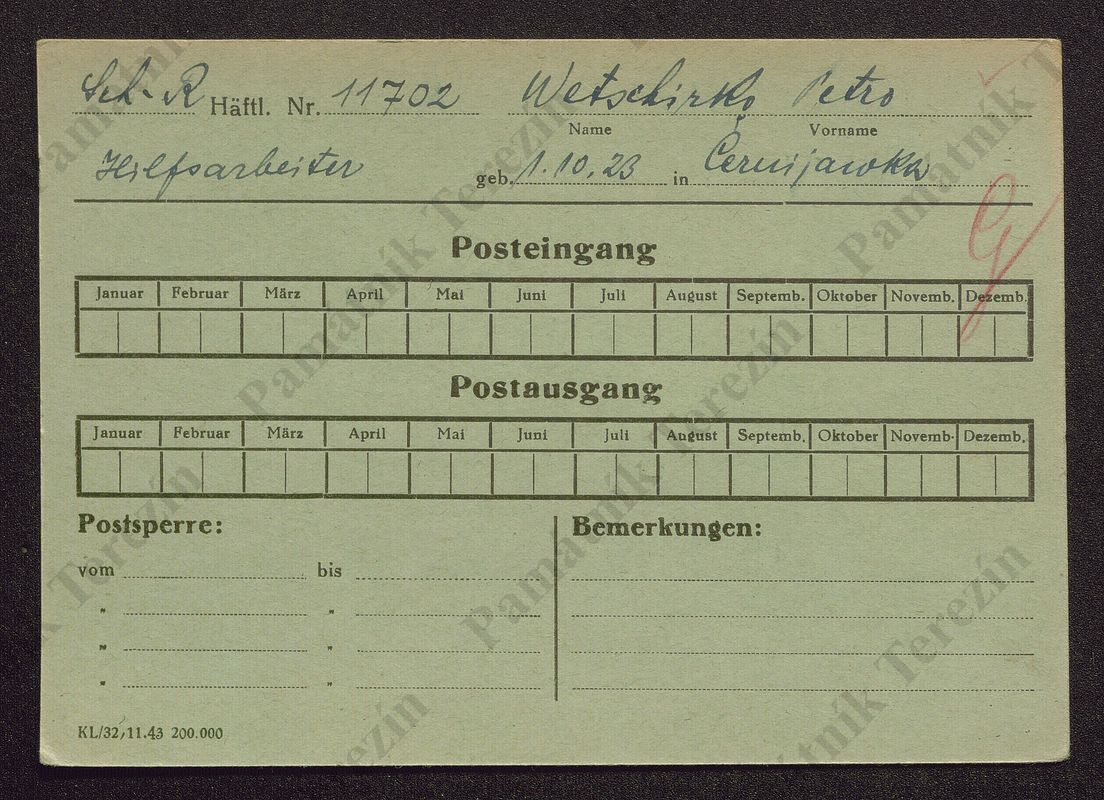 Sch-R Häftl. Nr. 11702 Wetschirko Petro
Name Vorname
Hilfsarbeiter geb. 1.10.23 in Černijawka
Posteingang
Januar Februar März April Mai Juni Juli August Septemb. Oktober Novemb. Dezemb.
Postausgang
Januar Februar März April Mai Juni Juli August Septemb. Oktober Novemb. Dezemb.
Postsperre: Bemerkungen:
vom bis
" "
" "
" "
KL/32, 11.43 200.000
Památník Terezín